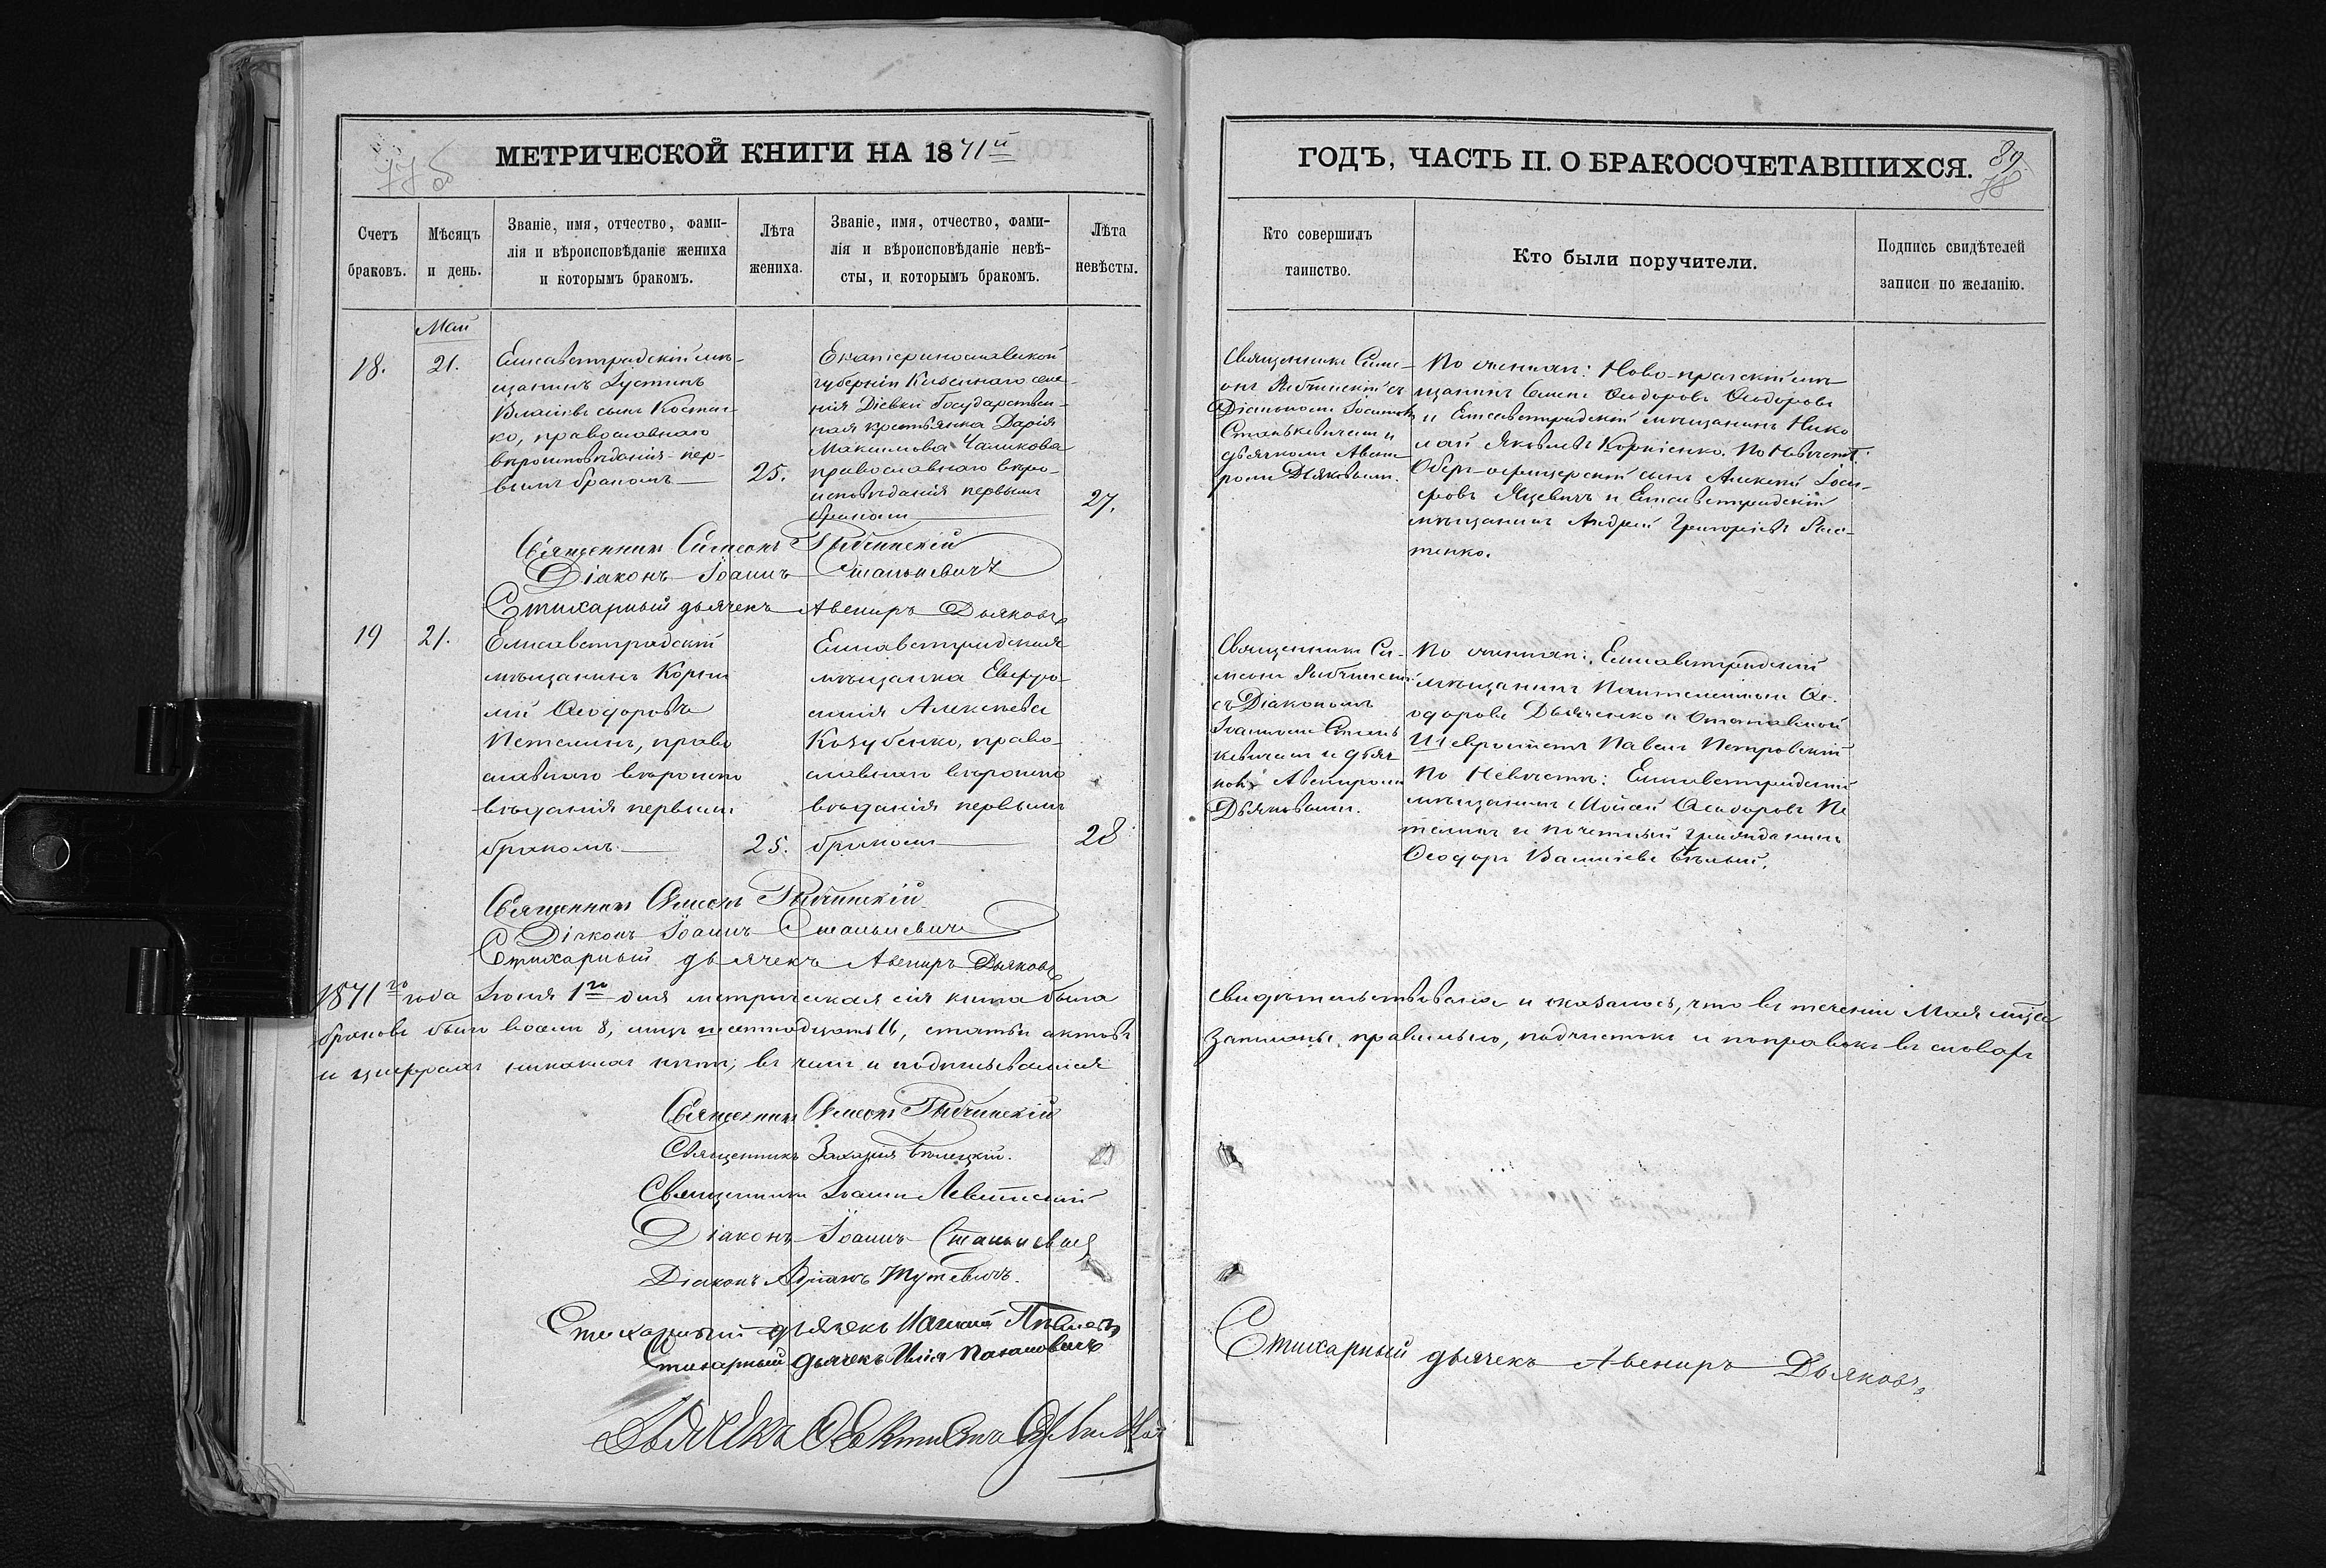 МЕТРИЧЕСКОЙ КНИГИ НА 1871й
ГОДЪ, ЧАСТЬ II. О БРАКОСОЧЕТАВШИХСЯ.
Счетъ браковъ.
Мѣсяцъ и день.
Званіе, имя, отчество, фами-
лія и вѣроисповѣданіе жениха
и которымъ бракомъ.
Лѣта
жениха.
Званіе, имя, отчество, фами-
лія и вѣроисповѣданіе невѣ-
сты, и которымъ бракомъ.
Лѣта
невѣсты.
Кто совершилъ
таинство.
Кто были поручители.
Подпись свидѣтелей
записи по желанію.
Май
18.
21.
Елисаветградскій мѣ-
щанинъ Іустинъ
Власіевъ сынъ Костен-
ко, православнаго
вѣроисповѣданія пер-
вымъ бракомъ
25.
Екатеринославской
губерніи Казеннаго селе-
нія Діевки Государствен-
ная крестьянка Дарія
Максимова Чаликова
православнаго вѣро-
исповѣданія первымъ
бракомъ
27.
Священникъ Симе-
онъ Рыбчинскій съ
Діакономъ Іоанномъ
Станькевичемъ и
дьячкомъ Авени-
ромъ Дьяковымъ.
По женихѣ: Ново-пражскій мѣ-
щанинъ Семенъ Ѳеодоровъ Ѳеодоровъ
и Елисаветградскій мѣщанинъ Нико
лай Яковлевъ Корніенко. По Невѣстѣ:
Оберъ-офицерскій сынъ Алексѣй Іоси-
фовъ Яцевичъ и Елисаветградскій
мѣщанинъ Андрей Григоріевъ
тенко.
Священникъ Симеонъ Рыбчинскій
Діаконъ Іоаннъ Станькевичъ
Стихарный дьячекъ Авениръ Дьяковъ
19
21.
Елисаветградскій
мѣщанинъ Корни
лій Ѳеодоровъ
Петелинъ, право
славнаго вѣроиспо
вѣданія первымъ
бракомъ
25.
Елисаветградская
мѣщанка Евфро-
синія Алексѣева
Козубенко, право-
славнаго вѣроиспо
вѣданія первымъ
бракомъ
28
Священникъ Си-
меонъ Рыбчинскій
съ Діакономъ
Іоанномъ Стань
кевичемъ и дьяч
комъ Авениромъ
Дьяковымъ.
По женихѣ: Елисаветградскій
мѣщанинъ Пантелеймонъ Ѳе-
одоровъ Дьяченко и Отставной
Павелъ Петровскій
По Невѣстѣ: Елисаветградскій
мѣщанинъ Ѳеодоровъ Пе
телинъ и почетный гражданинъ
Ѳеодоръ Василіевъ Бѣлый.
Священникъ Симеонъ Рыбчинскій
Діаконъ Іоаннъ Станькевичъ
Стихарный дьячекъ Авениръ Дьяковъ
1871го года Іюня 1го дня метрическая сія книга была свидѣтельствована и оказалось, что въ теченіи Мая мѣсяца
браковъ было восемь 8, лицъ шестнадцать 16, статьи актовъ записаны правильно, подчистокъ и поправокъ въ словахъ
и цифрахъ никакихъ нѣтъ, въ чемъ и подписываемся
Священникъ Симеонъ Рыбчинскій
Священникъ Захарія Бѣлецкій.
Священникъ Іоаннъ Левитскій
Діаконъ Іоаннъ Станькевичъ
Діаконъ Адріанъ
Стихарный дьячекъ
Стихарный дьячекъ Илія
Дьячекъ
Стихарный дьячекъ Авениръ Дьяковъ